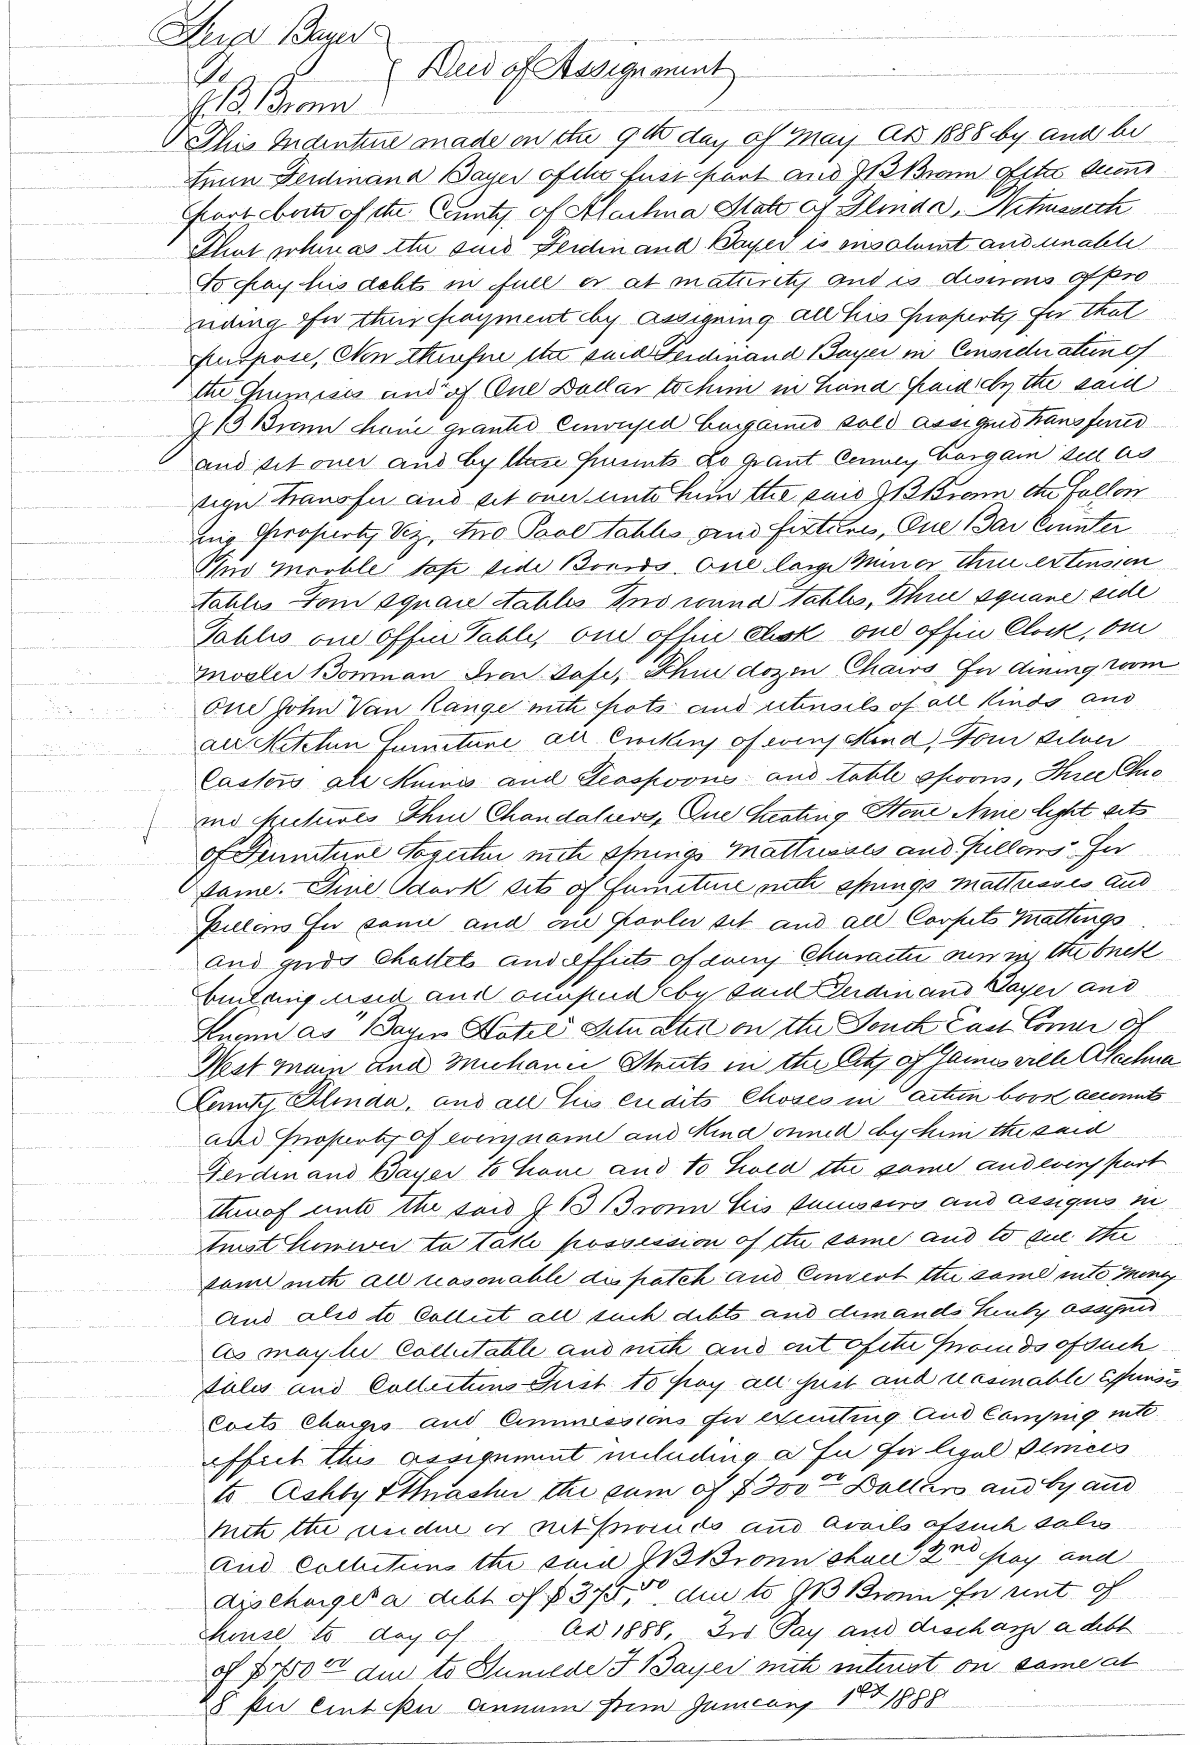 Ferd Bayer
To
Deed of Assignment
J. B. Brown
This Indenture made on the 9th day of May AD 1888 by and be
tween Ferdinand Bayer of the first part and J B Brown of the second
part both of the County of Alachua State of Florida, Witnesseth
That whereas the said Ferdinand Bayer is insolvent and unable
to pay his debts in full or at maturity and is desirous of pro
viding for their payment by assigning all his property for that
purpose, Now therefore the said Ferdinand Bayer in Consideration of
the premises and of One Dollar to him in hand paid by the said
J B Brown have granted Conveyed bargained sold assigned transferred
and set over and by these presents do grant Convey bargain sell as
sign transfer and set over unto him the said J B Brown the follow
ing property Viz, two Pool tables and fixtures, One Bar Counter
Two marble top side Boards. One large Mirror three extension
tables Four square tables Two round tables, Three square side
Tables one office Table, one office desk one office Clock, one
Mosler Bowman Iron safe, Three dozen Chairs for dining room
One John Van Range with pots and utensils of all Kinds and
all Kitchen furniture all Crockery of every Kind, Four silver
Castors all Knives and Teaspoons and table spoons, Three Chro
mo pictures Three Chandaliers, One heating Stove Nine light sets
of Furniture together with springs Mattresses and pillows for
same. Five dark sets of furniture with springs mattresses and
pillows for same and one parlor set and all Carpets Mattings
and goods Chattels and effects of every Character now in the brick
building used and occupied by said Ferdinand Bayer and
Known as "Bayers Hotel" Situated on the South East Corner of
West main and Mechanic Streets in the City of Gainesville Alachua
County Florida, and all his credits Choses in action book accounts
and property of every name and Kind owned by him the said
Ferdinand Bayer to have and to hold the same and every part
thereof unto the said J B Brown his successors and assigns in
trust however to take possession of the same and to sell the
same with all reasonable dispatch and Convert the same into Money
and also to Collect all such debts and demands hereby assigned
as may be Collectable and with and out of the proceeds of such
sales and Collections First to pay all just and reasonable Expenses
Costs Charges and Commissions for executing and Carrying into
effect this assignment including a fee for legal services
to Ashby & Thrasher the sum of $300 00 Dollars and by and
with the residue or net proceeds and avails of such sales
and Collections the said J B Brown shall 2nd pay and
discharge a debt of $375.00 due to J B Brown for rent of
house to day of AD 1888, 3rd Pay and discharge a debt
of $750 00 due to F Bayer with interest on same at
8 per Cent per annum from January 1st 1888